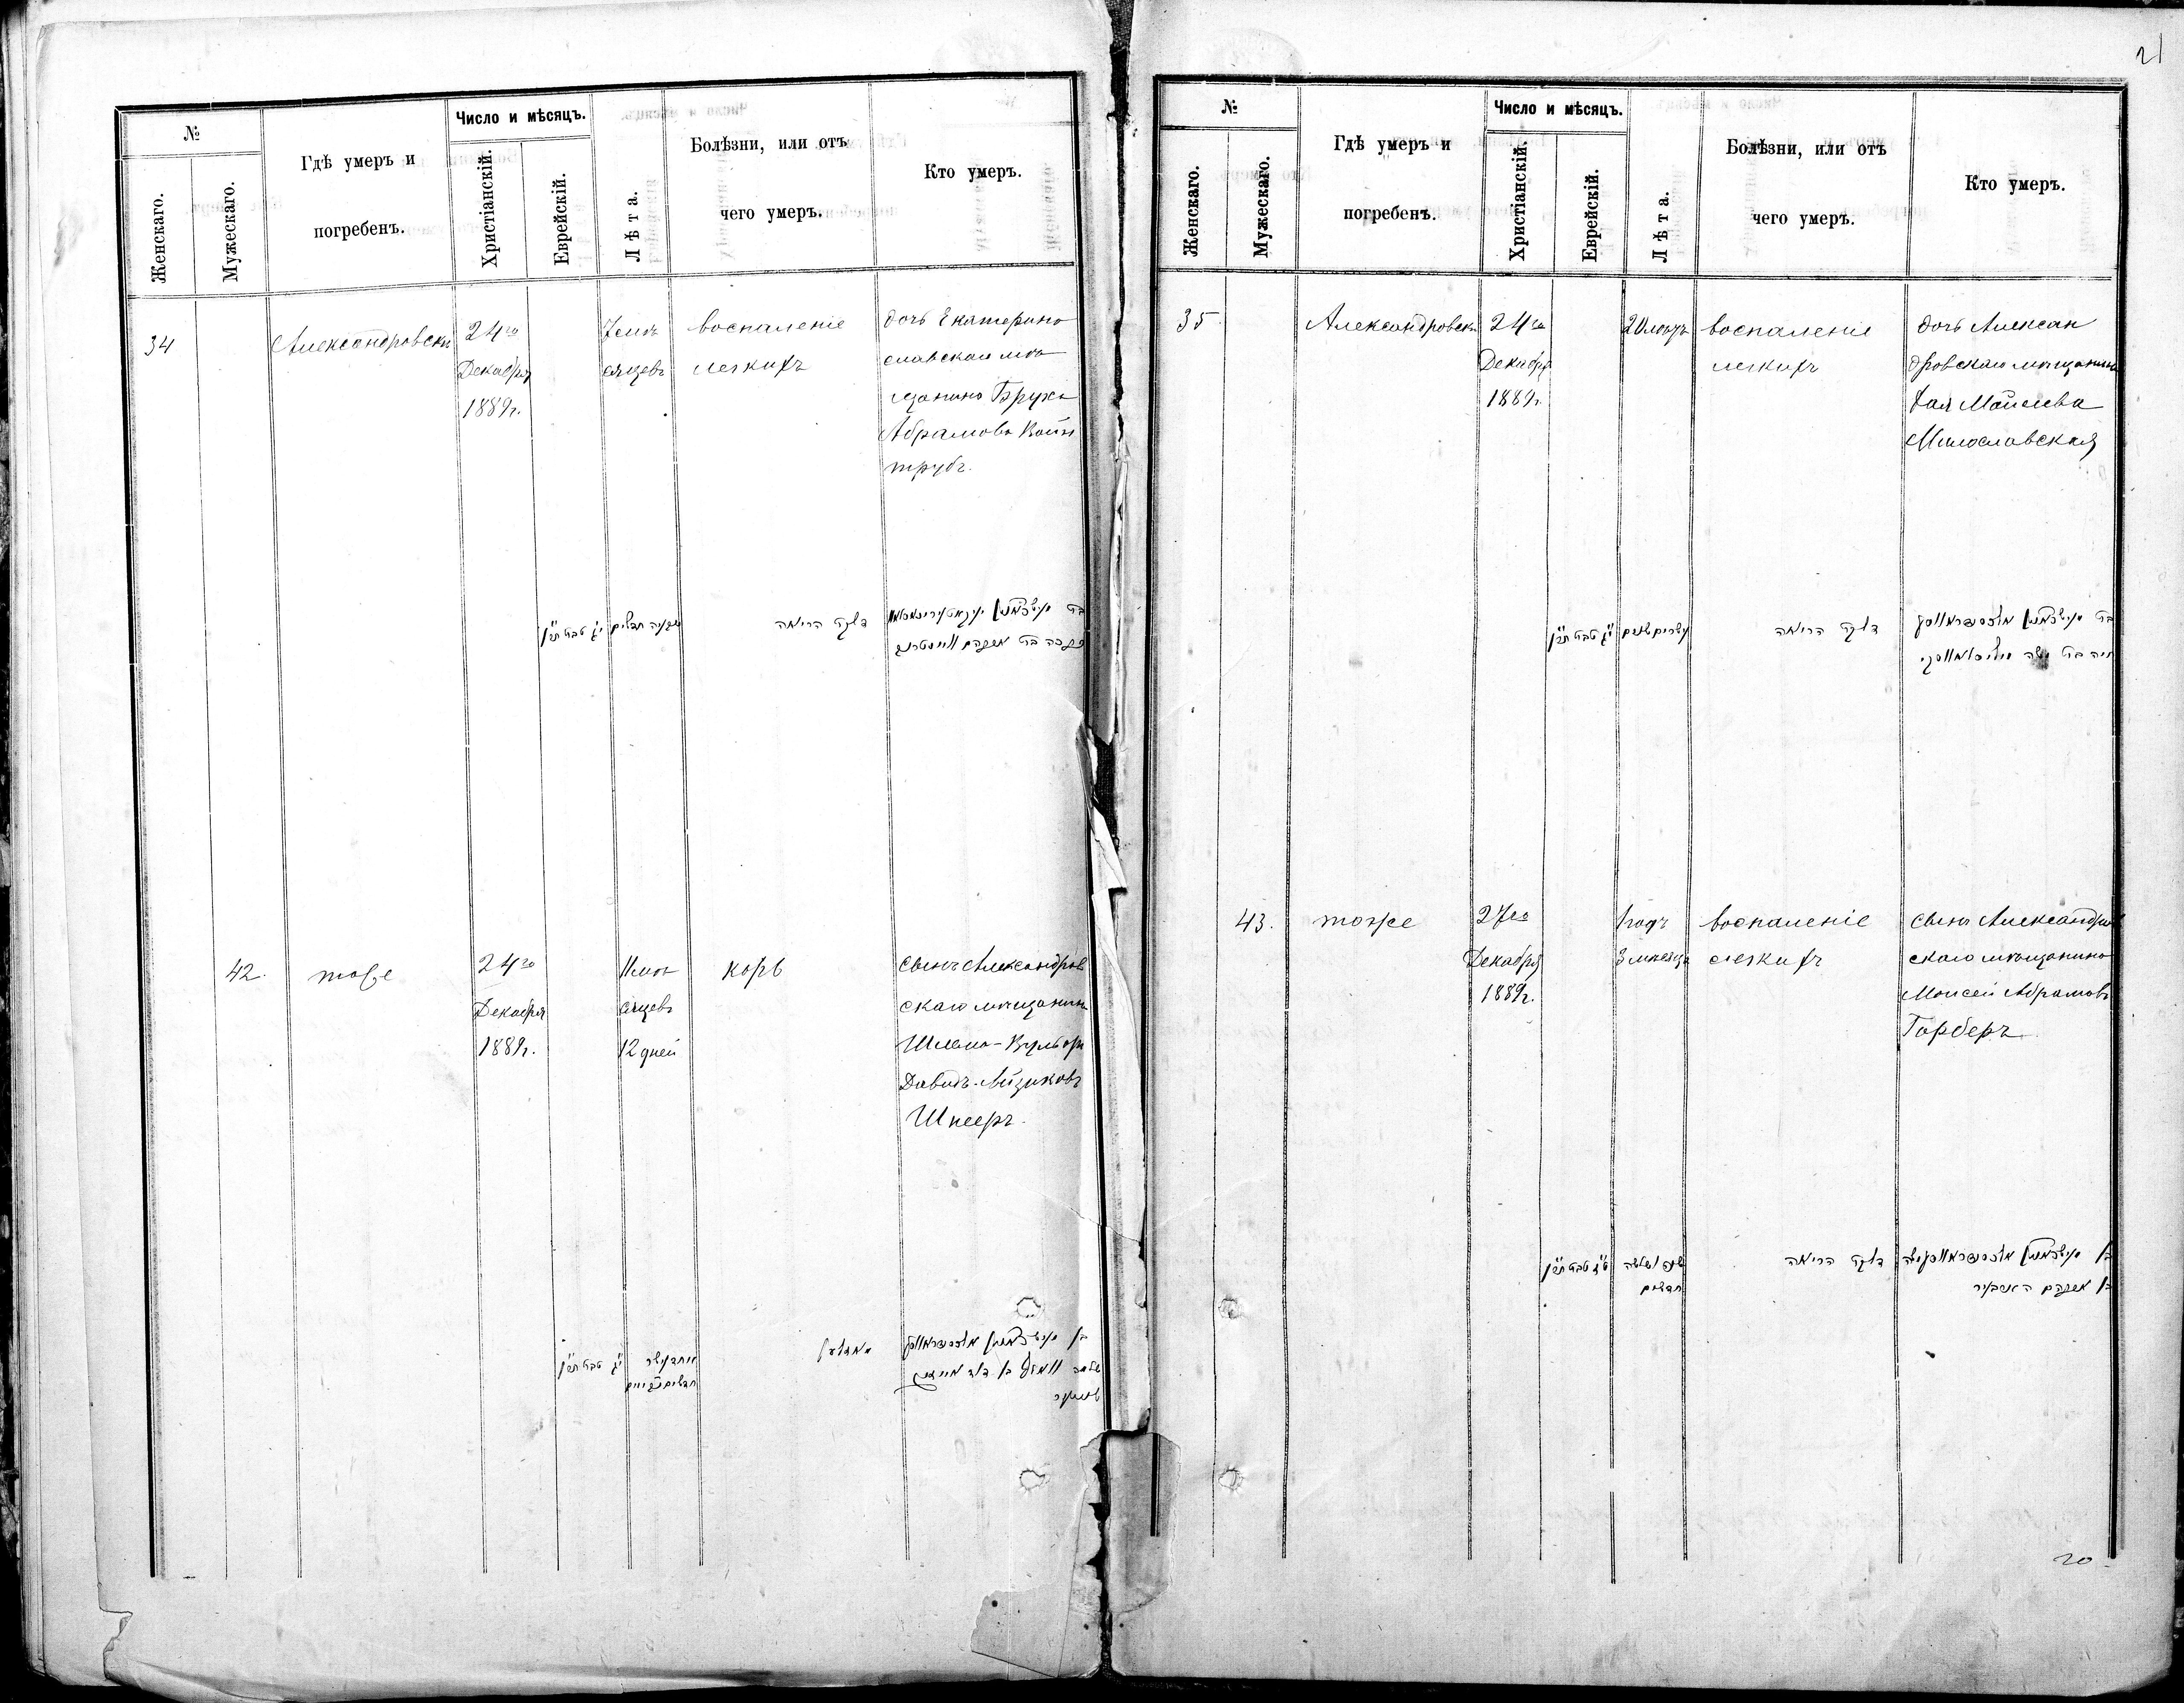 21
№
Женскаго.
Мужескаго.
Гдѣ умеръ и
погребенъ.
Число и мѣсяцъ.
Христіанскій.
Еврейскій.
Лѣта.
Болѣзни, или отъ
чего умеръ.
Кто умеръ.
34
Александровскъ
24го
Декабря
1889г.
7 мѣ
сяцевъ
воспаленіе
легкихъ
дочь Екатерино
славскаго мѣ
щанина Бруха
Абрамова
трубъ.
י״ג טבת תר״ן
שבעה חדשים
דלקת הריאה
42.
тоже
24го
Декабря
1889г.
11 мѣ
сяцевъ
12 дней
корь
сынъ Александров
скаго мѣщанина
Шлема-Вульфъ
Давидъ-Айзиковъ
Шнееръ.
י״ג טבת תר״ן
№
Женскаго.
Мужескаго.
Гдѣ умеръ и
погребенъ.
Число и мѣсяцъ.
Христіанскій.
Еврейскій.
Лѣта.
Болѣзни, или отъ
чего умеръ.
Кто умеръ.
35
Александровскъ
24го
Декабря
1889г.
20 лѣтъ
воспаленіе
легкихъ
дочь Алексан
дровскаго мѣщанина
Хая Моисеева
Милославская
י״ג טבת תר״ן
עשרים שנים
דלקת הריאה
43.
тоже
27го
Декабря
1889г.
1 годъ
3 мѣсяца
воспаленіе
легкихъ
сынъ Александров
скаго мѣщанина
Моисей Абрамовъ
Гарберъ
ט״ז טבת תר״ן
שנה ושלשה
חדשים
דלקת הריאה
בן אברהם גארבער
20